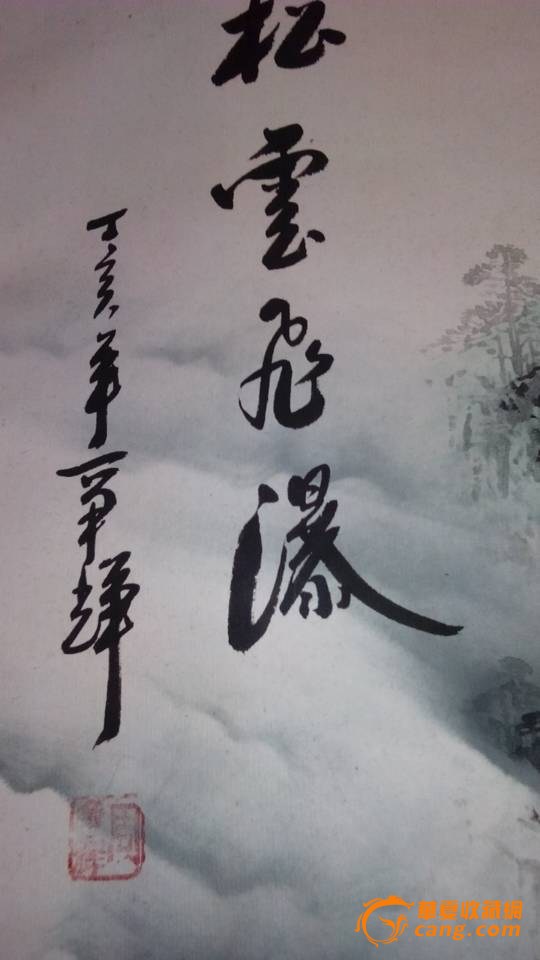 松雲飛瀑
丁亥年輝
华夏收藏网
cang.com